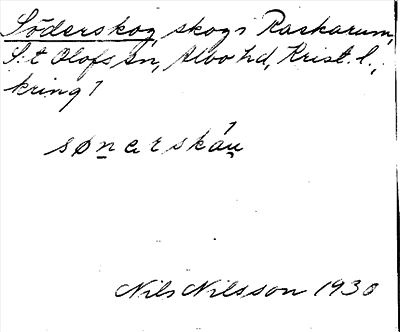 Söderskog, skog, Raskarum,
S:t Olofs sn, Albo hd, Krist. l.,
kring 1
sønerskáu
Nils Nilsson 1930